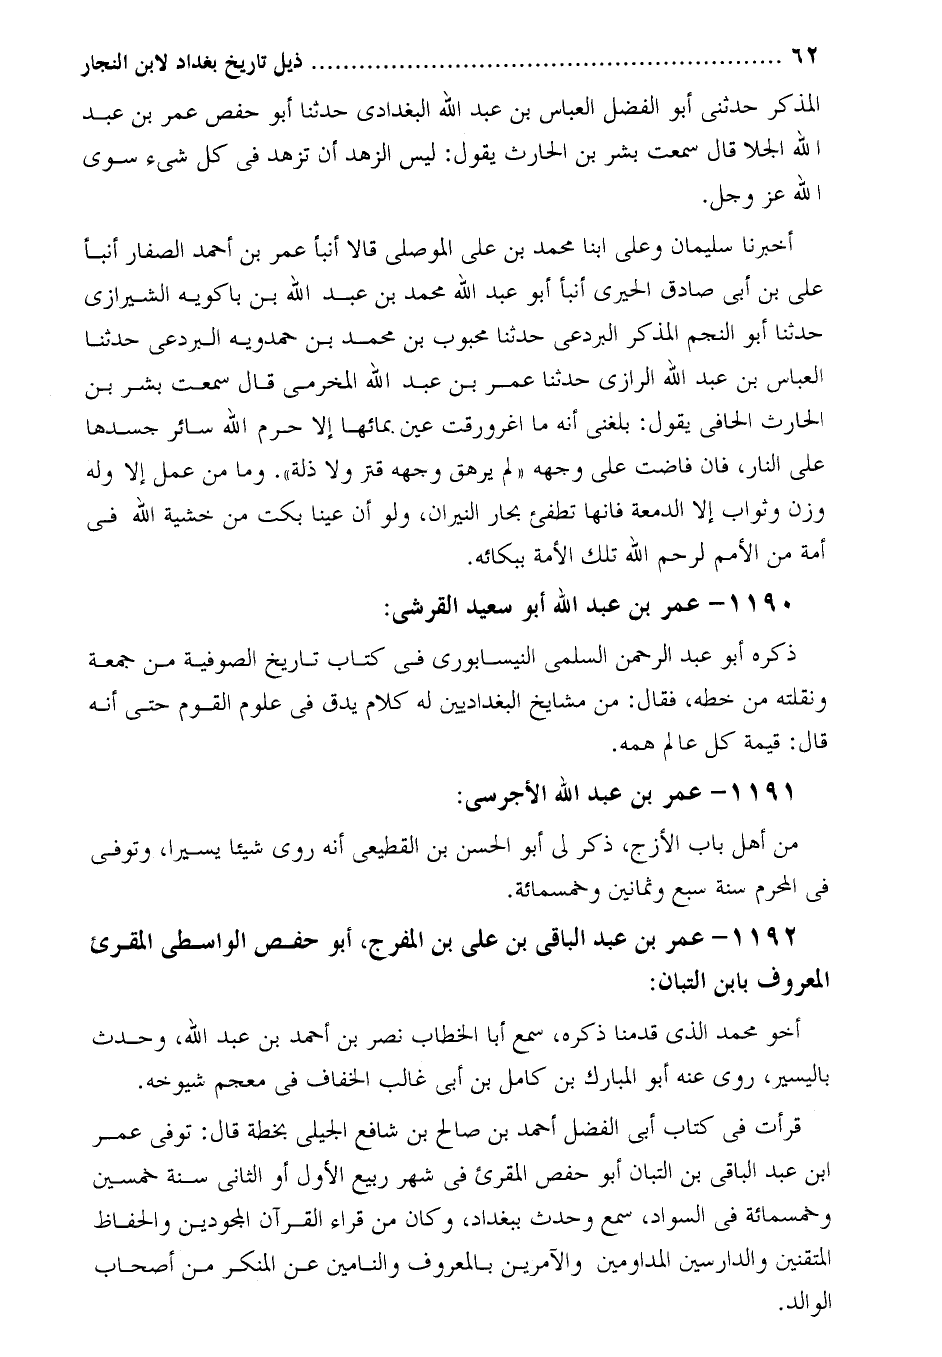 ٦٢ ........................................................ ذيل تاريخ بغداد لابن النجار
المذكر حدثنى أبو الفضل العباس بن عبد الله البغدادى حدثنا أبو حفص عمر بن عبد
الله الجلا قال سمعت بشر بن الحارث يقول: ليس الزهد أن تزهد فى كل شىء سوى
الله عز وجل.
أخبرنا سليمان وعلى ابنا محمد بن على الموصلى قالا أنبأ عمر بن أحمد الصفار أنبأ
على بن أبى صادق الحيرى أنبأ أبو عبد الله محمد بن عبد الله بن باكويه الشيرازى
حدثنا أبو النجم المذكر البردعى حدثنا محبوب بن محمد بن حمدويه البردعى حدثنا
العباس بن عبد الله الرازى حدثنا عمر بن عبد الله المخرمى قال سمعت بشر بن
الحارث الحافى يقول: بلغنى أنه ما اغرورقت عين بمائها إلا حرم الله سائر جسدها
على النار، فان فاضت على وجهه «لم يرهق وجهه قتر ولا ذلة». وما من عمل إلا وله
وزن وثواب إلا الدمعة فانها تطفئ بحار النيران، ولو أن عينا بكت من خشية الله فى
أمة من الأمم لرحم الله تلك الأمة ببكائه.
١١٩٠- عمر بن عبد الله أبو سعيد القرشى:
ذكره أبو عبد الرحمن السلمى النيسابورى فى كتاب تاريخ الصوفية من جمعة
ونقلته من خطه، فقال: من مشايخ البغداديين له كلام يدق فى علوم القوم حتى أنه
قال: قيمة كل عالم همه.
١١٩١- عمر بن عبد الله الأجرسى:
من أهل باب الأزج، ذكر لى أبو الحسن بن القطيعى أنه روى شيئا يسيرا، وتوفى
فى المحرم سنة سبع وثمانين وخمسمائة.
١١٩٢- عمر بن عبد الباقى بن على بن المفرج، أبو حفص الواسطى المقرئ
المعروف بابن التبان:
أخو محمد الذى قدمنا ذكره، سمع أبا الخطاب نصر بن أحمد بن عبد الله، وحدث
باليسير، روى عنه أبو المبارك بن كامل بن أبى غالب الخفاف فى معجم شيوخه.
قرأت فى كتاب أبى الفضل أحمد بن صالح بن شافع الجيلى بخطة قال: توفى عمر
ابن عبد الباقى بن التبان أبو حفص المقرئ فى شهر ربيع الأول أو الثانى سنة خمسين
وخمسمائة فى السواد، سمع وحدث ببغداد، وكان من قراء القرآن المجودين والحفاظ
المتقنين والدارسين المداومين والآمرين بالمعروف والنامين عن المنكر من أصحاب
الوالد.